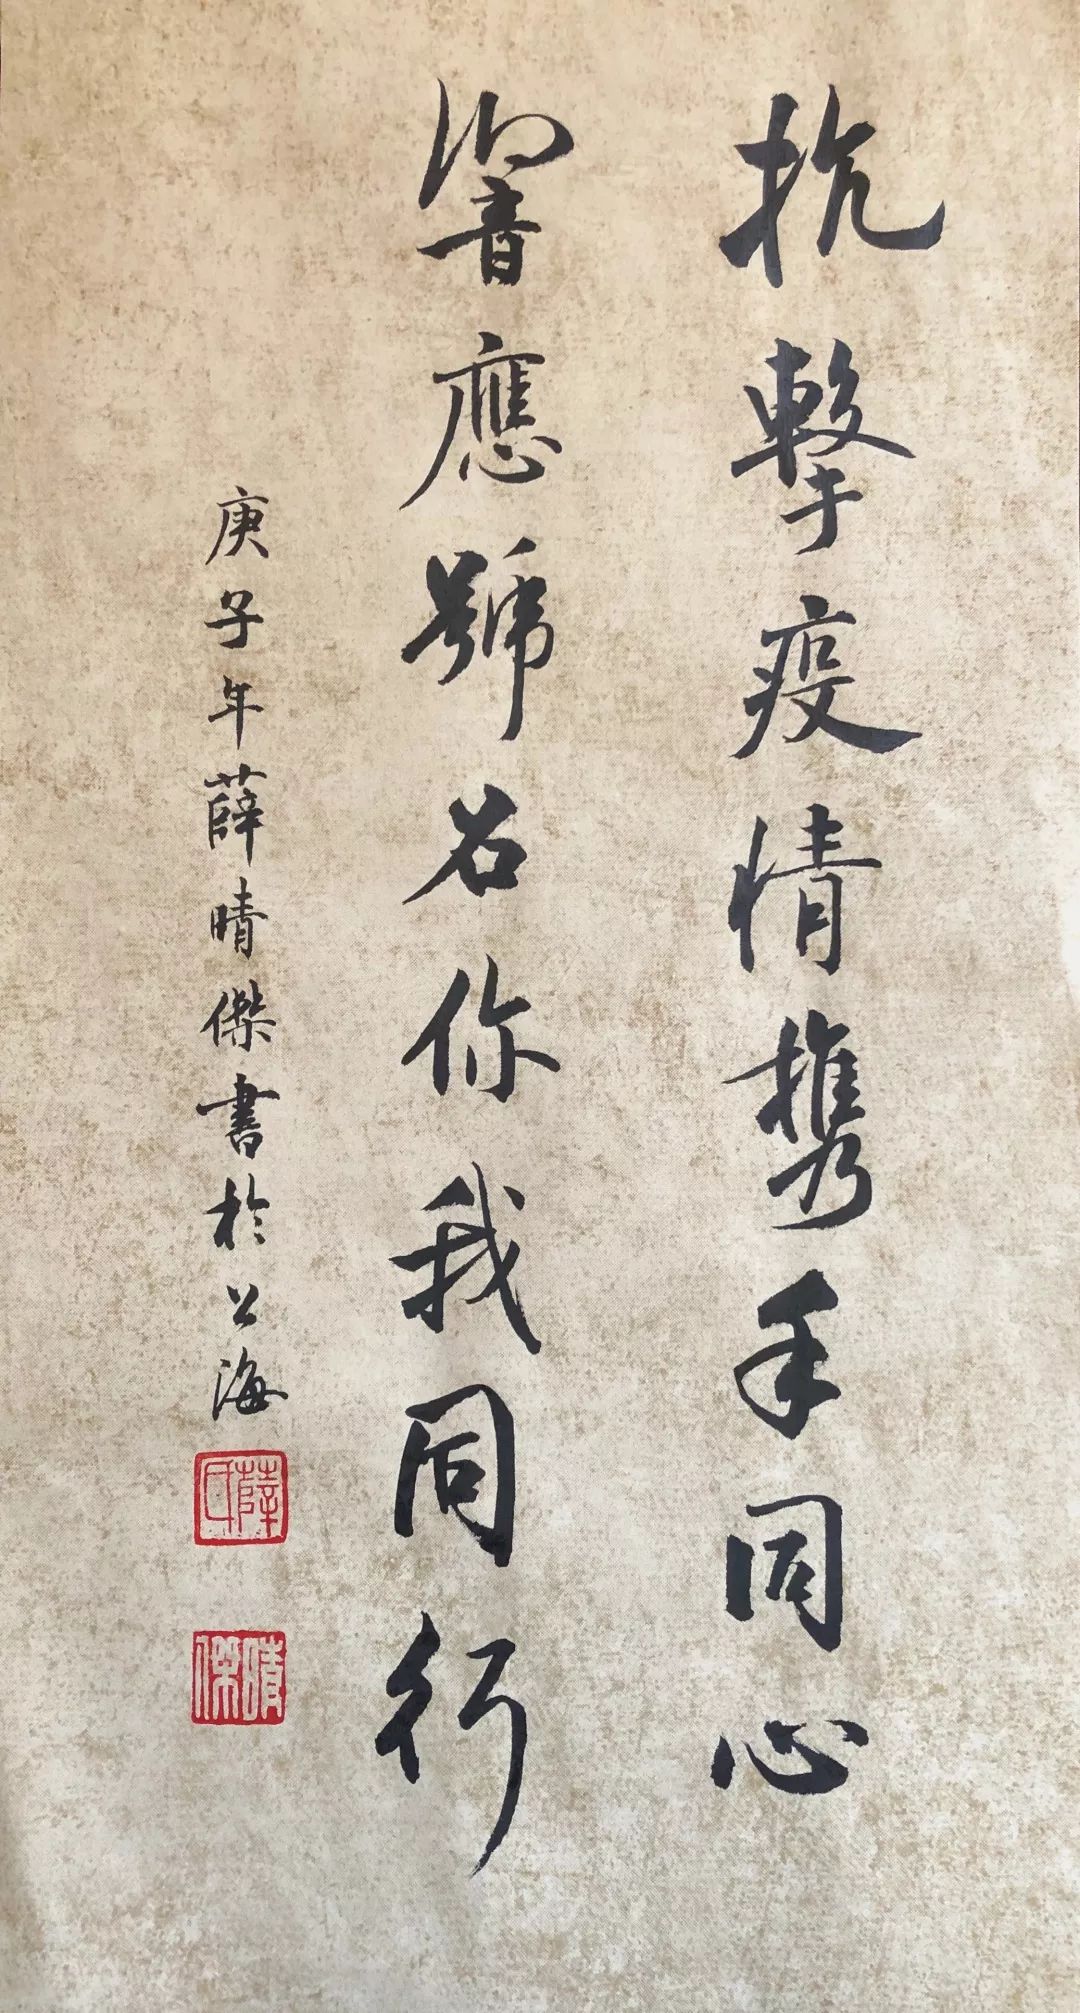 抗擊疫情攜手同心
響應號召你我同行
庚子年薛晴傑書於公海
薛氏
晴傑